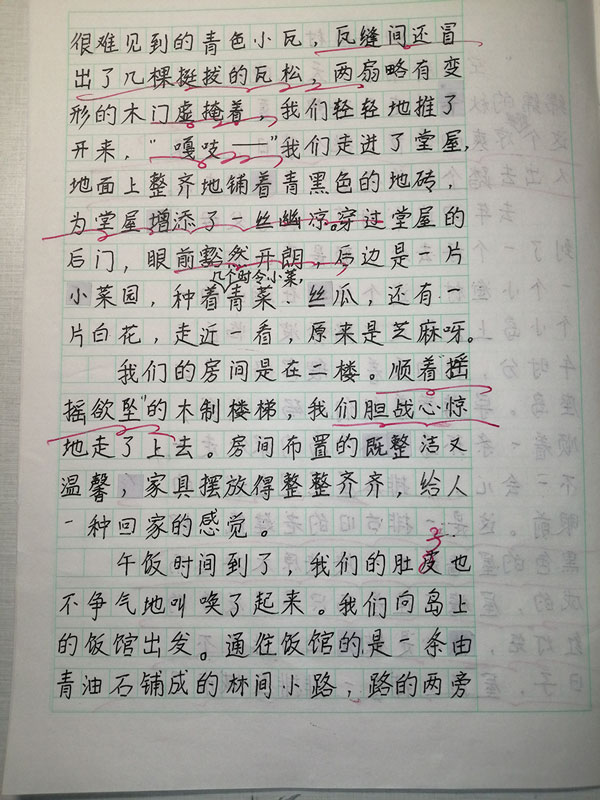 很难见到的青色小瓦，瓦缝间还冒
出了几棵挺拔的瓦松，两扇略有变
形的木门虚掩着，我们轻轻地推了
开来，“嘎吱——”我们走进了堂屋，
地面上整齐地铺着青黑色的地砖，
为堂屋增添了一丝幽凉。穿过堂屋的
后门，眼前豁然开朗，后边是一片
几个时令小菜，
小菜园，种着青菜、丝瓜，还有一
片白花，走近一看，原来是芝麻呀。
我们的房间是在二楼。顺着“摇
摇欲坠”的木制楼梯，我们胆战心惊
地走了上去。房间布置的既整洁又
温馨，家具摆放得整整齐齐，给人
一种回家的感觉。
子
午饭时间到了，我们的肚皮也
不争气地叫唤了起来。我们向岛上
的饭馆出发。通往饭馆的是一条由
青油石铺成的林间小路，路的两旁